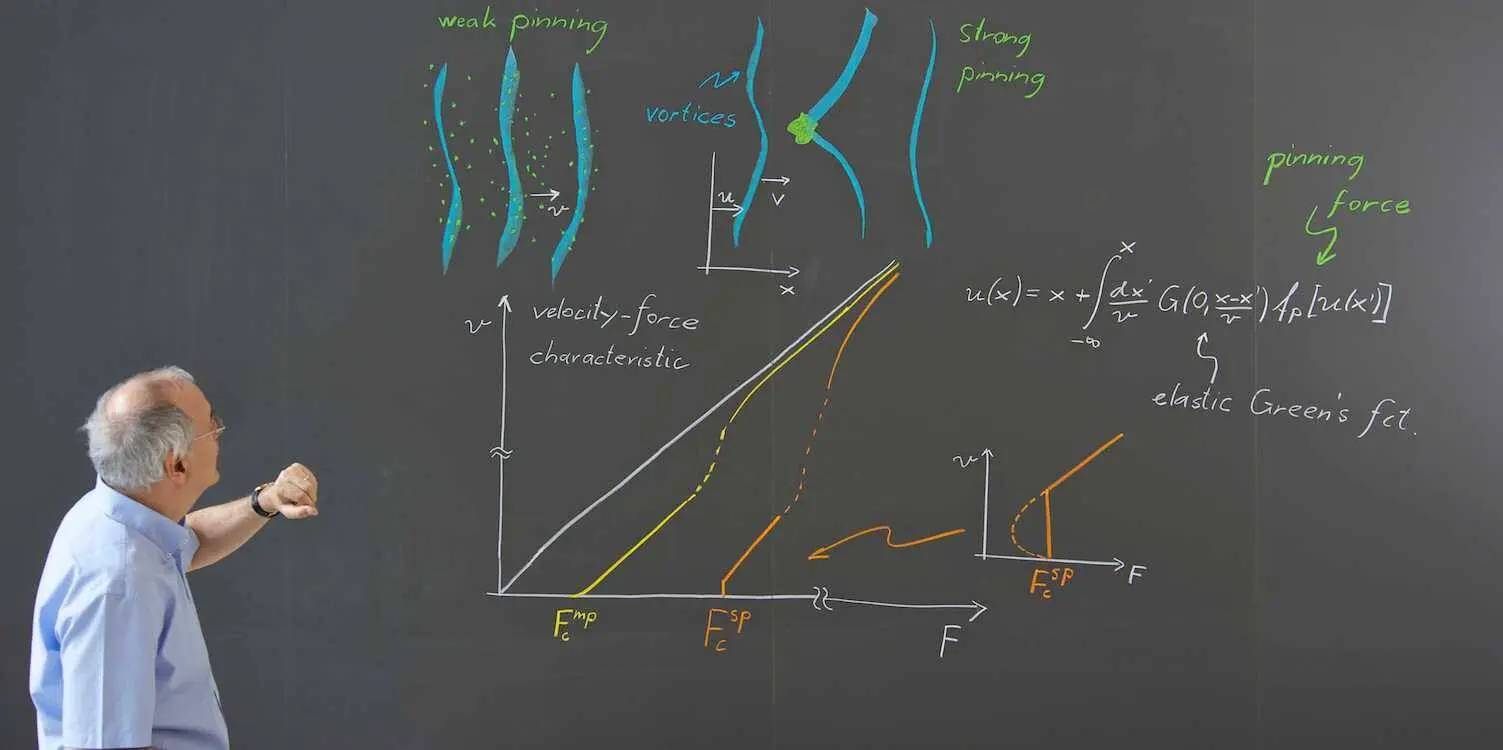 weak pinning
strong
pinning
vortices
v
u
v
x
pinning
force
u(x) = x + ∫_{-∞}^{x} dx'/v G(0, x-x'/v) f_p[u(x')]
elastic Green's fct.
v
velocity-force
characteristic
F_c^{mp}
F_c^{sp}
F
v
F_c^{sp}
F